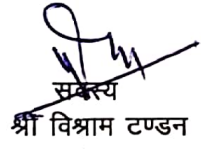 सदस्य
श्री विश्राम टण्डन